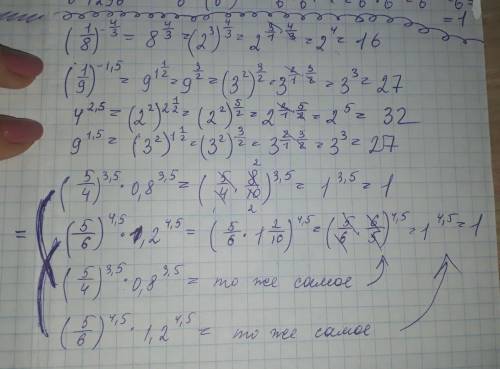 = 1
(1/8)^(-4/3) = 8^(4/3) = (2^3)^(4/3) = 2^(3/1 · 4/3) = 2^4 = 16
(1/9)^(-1,5) = 9^(1 1/2) = 9^(3/2) = (3^2)^(3/2) = 3^(2/1 · 3/2) = 3^3 = 27
4^(2,5) = (2^2)^(2 1/2) = (2^2)^(5/2) = 2^(2/1 · 5/2) = 2^5 = 32
9^(1,5) = (3^2)^(1 1/2) = (3^2)^(3/2) = 3^(2/1 · 3/2) = 3^3 = 27
(5/4)^(3,5) · 0,8^(3,5) = (5/4 · 8/10)^(3,5) = 1^(3,5) = 1
= (5/6)^(4,5) · 1,2^(4,5) = (5/6 · 1 2/10)^(4,5) = (5/6 · 6/5)^(4,5) = 1^(4,5) = 1
(5/4)^(3,5) · 0,8^(3,5) = то же самое
(5/6)^(4,5) · 1,2^(4,5) = то же самое